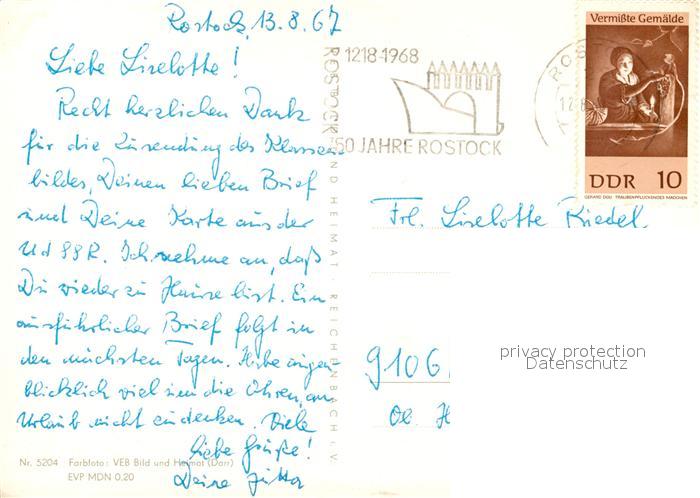 Rostock, 13.8.67
Liebe Liselotte!
Recht herzlichen Dank
für die Zusendung des Klassen-
bildes, Deinen lieben Brief
und Deine Karte aus der
UdSSR. Ich nehme an, daß
Du wieder zu Hause bist. Ein
ausführlicher Brief folgt in
den nächsten Tagen. Habe augen-
blicklich viel um die Ohren, an
Urlaub nicht zu denken. Viele
liebe Grüße!
Deine Jutta
Nr. 5204 Farbfoto: VEB Bild und Heimat (Darr)
EVP MDN 0,20
BILD UND HEIMAT REICHENBACH i. V.
1218-1968
750 JAHRE ROSTOCK
ROSTOCK
Vermißte Gemälde
DDR 10
GERARD DOU TRAUBENPFLÜCKENDES MÄDCHEN
Frl. Liselotte Riedel
9106
Ob. H
privacy protection
Datenschutz